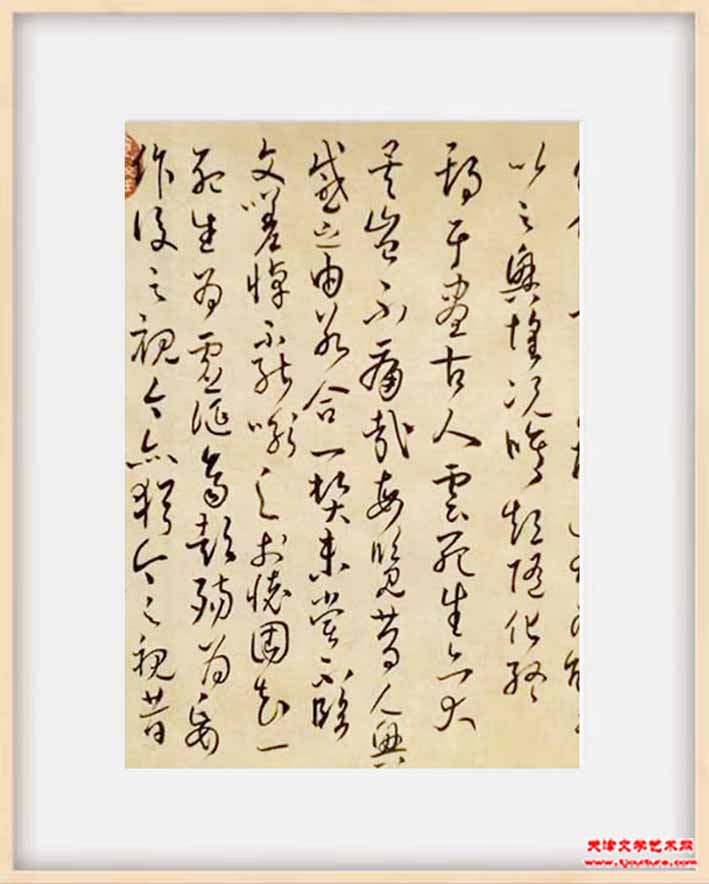 以之興懷況脩短隨化終
期于盡古人雲死生亦大
矣豈不痛哉每覽昔人興
感之由若合一契未嘗不臨
文嗟悼不能喻之於懷固知一
死生為虛誕齊彭殤為妄
作後之視今亦猶今之視昔
天津文学艺术网